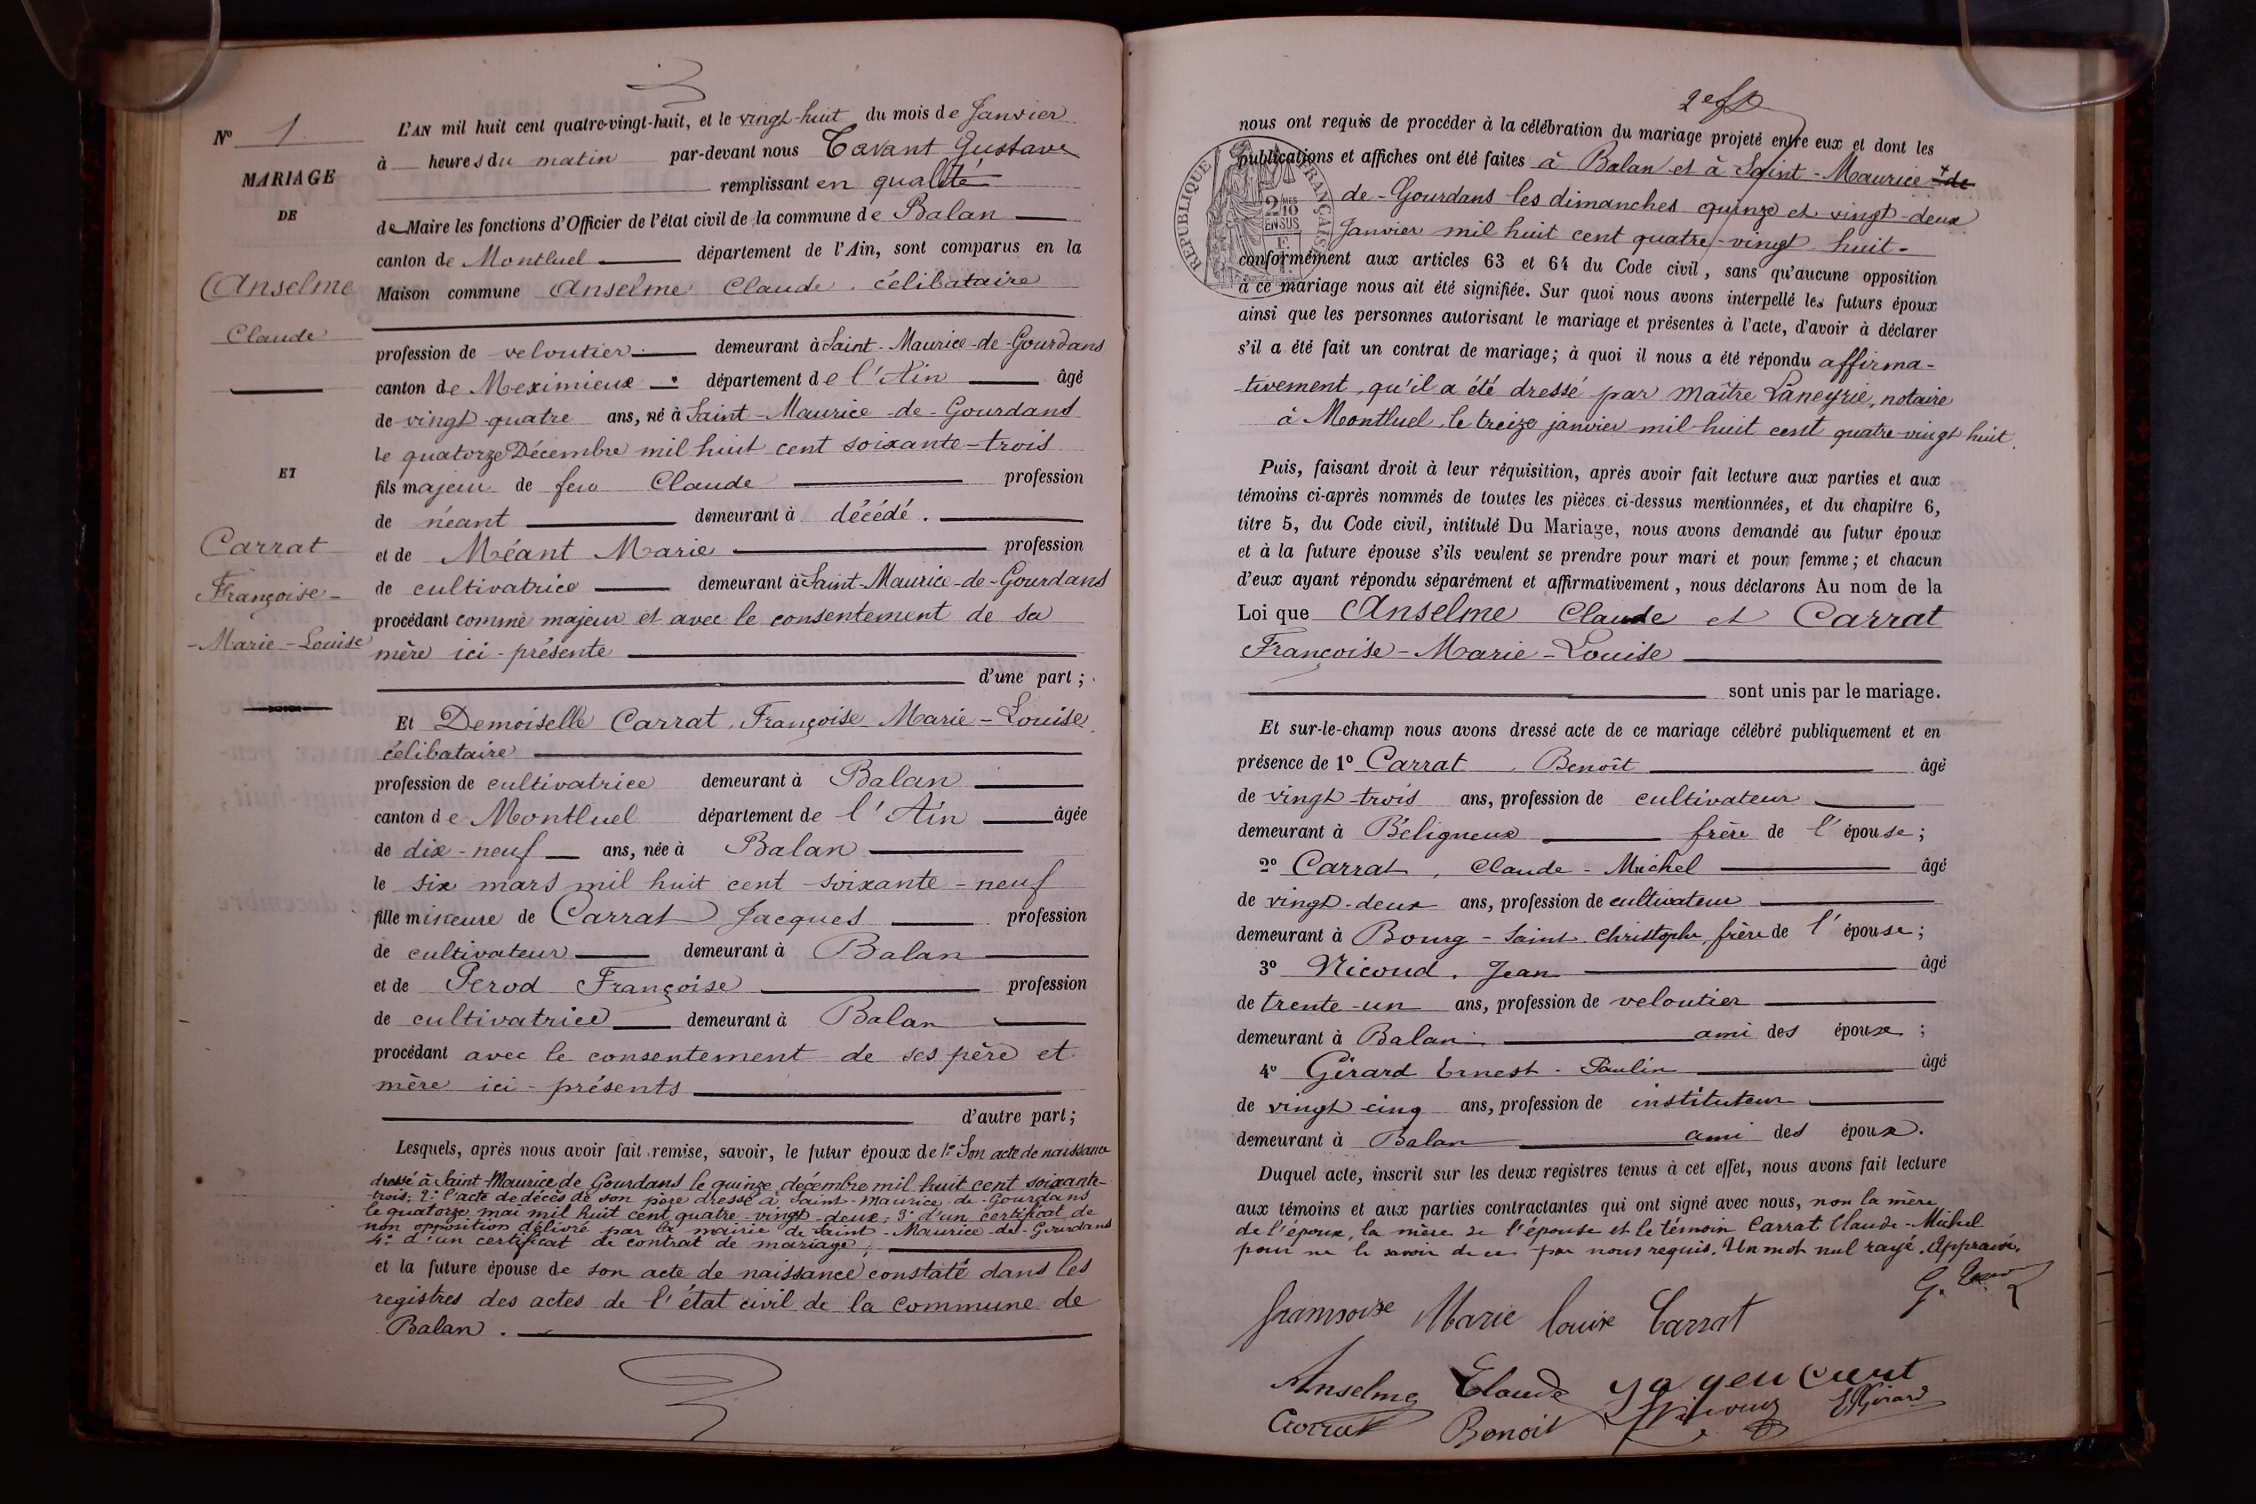 Nº 1
MARIAGE
DE
Anselme
Claude
ET
Carrat
Françoise-
-Marie-Louise
L'AN mil huit cent quatre-vingt-huit, et le vingt-huit du mois de Janvier
à heures du matin par-devant nous Tavant Gustave
remplissant en qualité
de Maire les fonctions d'Officier de l'état civil de la commune de Balan
canton de Montluel département de l'Ain, sont comparus en la
Maison commune Anselme Claude, célibataire
profession de veloutier demeurant à Saint-Maurice-de-Gourdans
canton de Meximieux département de l'Ain âgé
de vingt-quatre ans, né à Saint-Maurice-de-Gourdans
le quatorze Décembre mil huit cent soixante-trois
fils majeur de feu Claude profession
de néant demeurant à décédé.
et de Méant Marie profession
de cultivatrice demeurant à Saint-Maurice-de-Gourdans
procédant comme majeur et avec le consentement de sa
mère ici-présente
d'une part;
Et Demoiselle Carrat, Françoise Marie-Louise,
célibataire
profession de cultivatrice demeurant à Balan
canton de Montluel département de l'Ain âgée
de dix-neuf ans, née à Balan
le six mars mil huit cent soixante-neuf
fille mineure de Carrat Jacques profession
de cultivateur demeurant à Balan
et de Perod Françoise profession
de cultivatrice demeurant à Balan
procédant avec le consentement de ses père et
mère ici-présents
d'autre part;
Lesquels, après nous avoir fait remise, savoir, le futur époux de 1º Son acte de naissance
dressé à Saint-Maurice de Gourdans le quinze décembre mil huit cent soixante-
trois; 2º l'acte de décès de son père dressé à Saint-Maurice-de-Gourdans
le quatorze mai mil huit cent quatre-vingt-deux; 3º d'un certificat de
non opposition délivré par la mairie de Saint-Maurice-de-Gourdans
4º d'un certificat de contrat de mariage;
et la future épouse de son acte de naissance constaté dans les
registres des actes de l'état civil de la commune de
Balan.
2e
RÉPUBLIQUE FRANÇAISE
2/10 EN SUS
nous ont requis de procéder à la célébration du mariage projeté entre eux et dont les
publications et affiches ont été faites à Balan et à Saint-Maurice de
de-Gourdans les dimanches quinze et vingt-deux
Janvier mil huit cent quatre-vingt huit-
conformément aux articles 63 et 64 du Code civil, sans qu'aucune opposition
à ce mariage nous ait été signifiée. Sur quoi nous avons interpellé les futurs époux
ainsi que les personnes autorisant le mariage et présentes à l'acte, d'avoir à déclarer
s'il a été fait un contrat de mariage; à quoi il nous a été répondu affirma-
tivement, qu'il a été dressé par maître Laneyrie, notaire
à Montluel, le treize janvier mil huit cent quatre-vingt huit.
Puis, faisant droit à leur réquisition, après avoir fait lecture aux parties et aux
témoins ci-après nommés de toutes les pièces ci-dessus mentionnées, et du chapitre 6,
titre 5, du Code civil, intitulé Du Mariage, nous avons demandé au futur époux
et à la future épouse s'ils veulent se prendre pour mari et pour femme; et chacun
d'eux ayant répondu séparément et affirmativement, nous déclarons Au nom de la
Loi que Anselme Claude et Carrat
Françoise-Marie-Louise
sont unis par le mariage.
Et sur-le-champ nous avons dressé acte de ce mariage célébré publiquement et en
présence de 1º Carrat, Benoît âgé
de vingt-trois ans, profession de cultivateur
demeurant à Béligneux frère de l'épouse;
2º Carrat, Claude-Michel âgé
de vingt-deux ans, profession de cultivateur
demeurant à Bourg-Saint Christophe, frère de l'épouse;
3º Nicoud, Jean âgé
de trente-un ans, profession de veloutier
demeurant à Balan ami des époux;
4º Gérard Ernest-Paulin âgé
de vingt-cinq ans, profession de instituteur
demeurant à Balan ami des époux.
Duquel acte, inscrit sur les deux registres tenus à cet effet, nous avons fait lecture
aux témoins et aux parties contractantes qui ont signé avec nous, non la mère
de l'époux, la mère de l'épouse et le témoin Carrat Claude-Michel
pour ne le savoir de ce par nous requis. Un mot nul rayé. Approuvé.
Framsoise Marie Louise Carrat
Anselme Claude
Carrat Benoit Nicoud EGérard